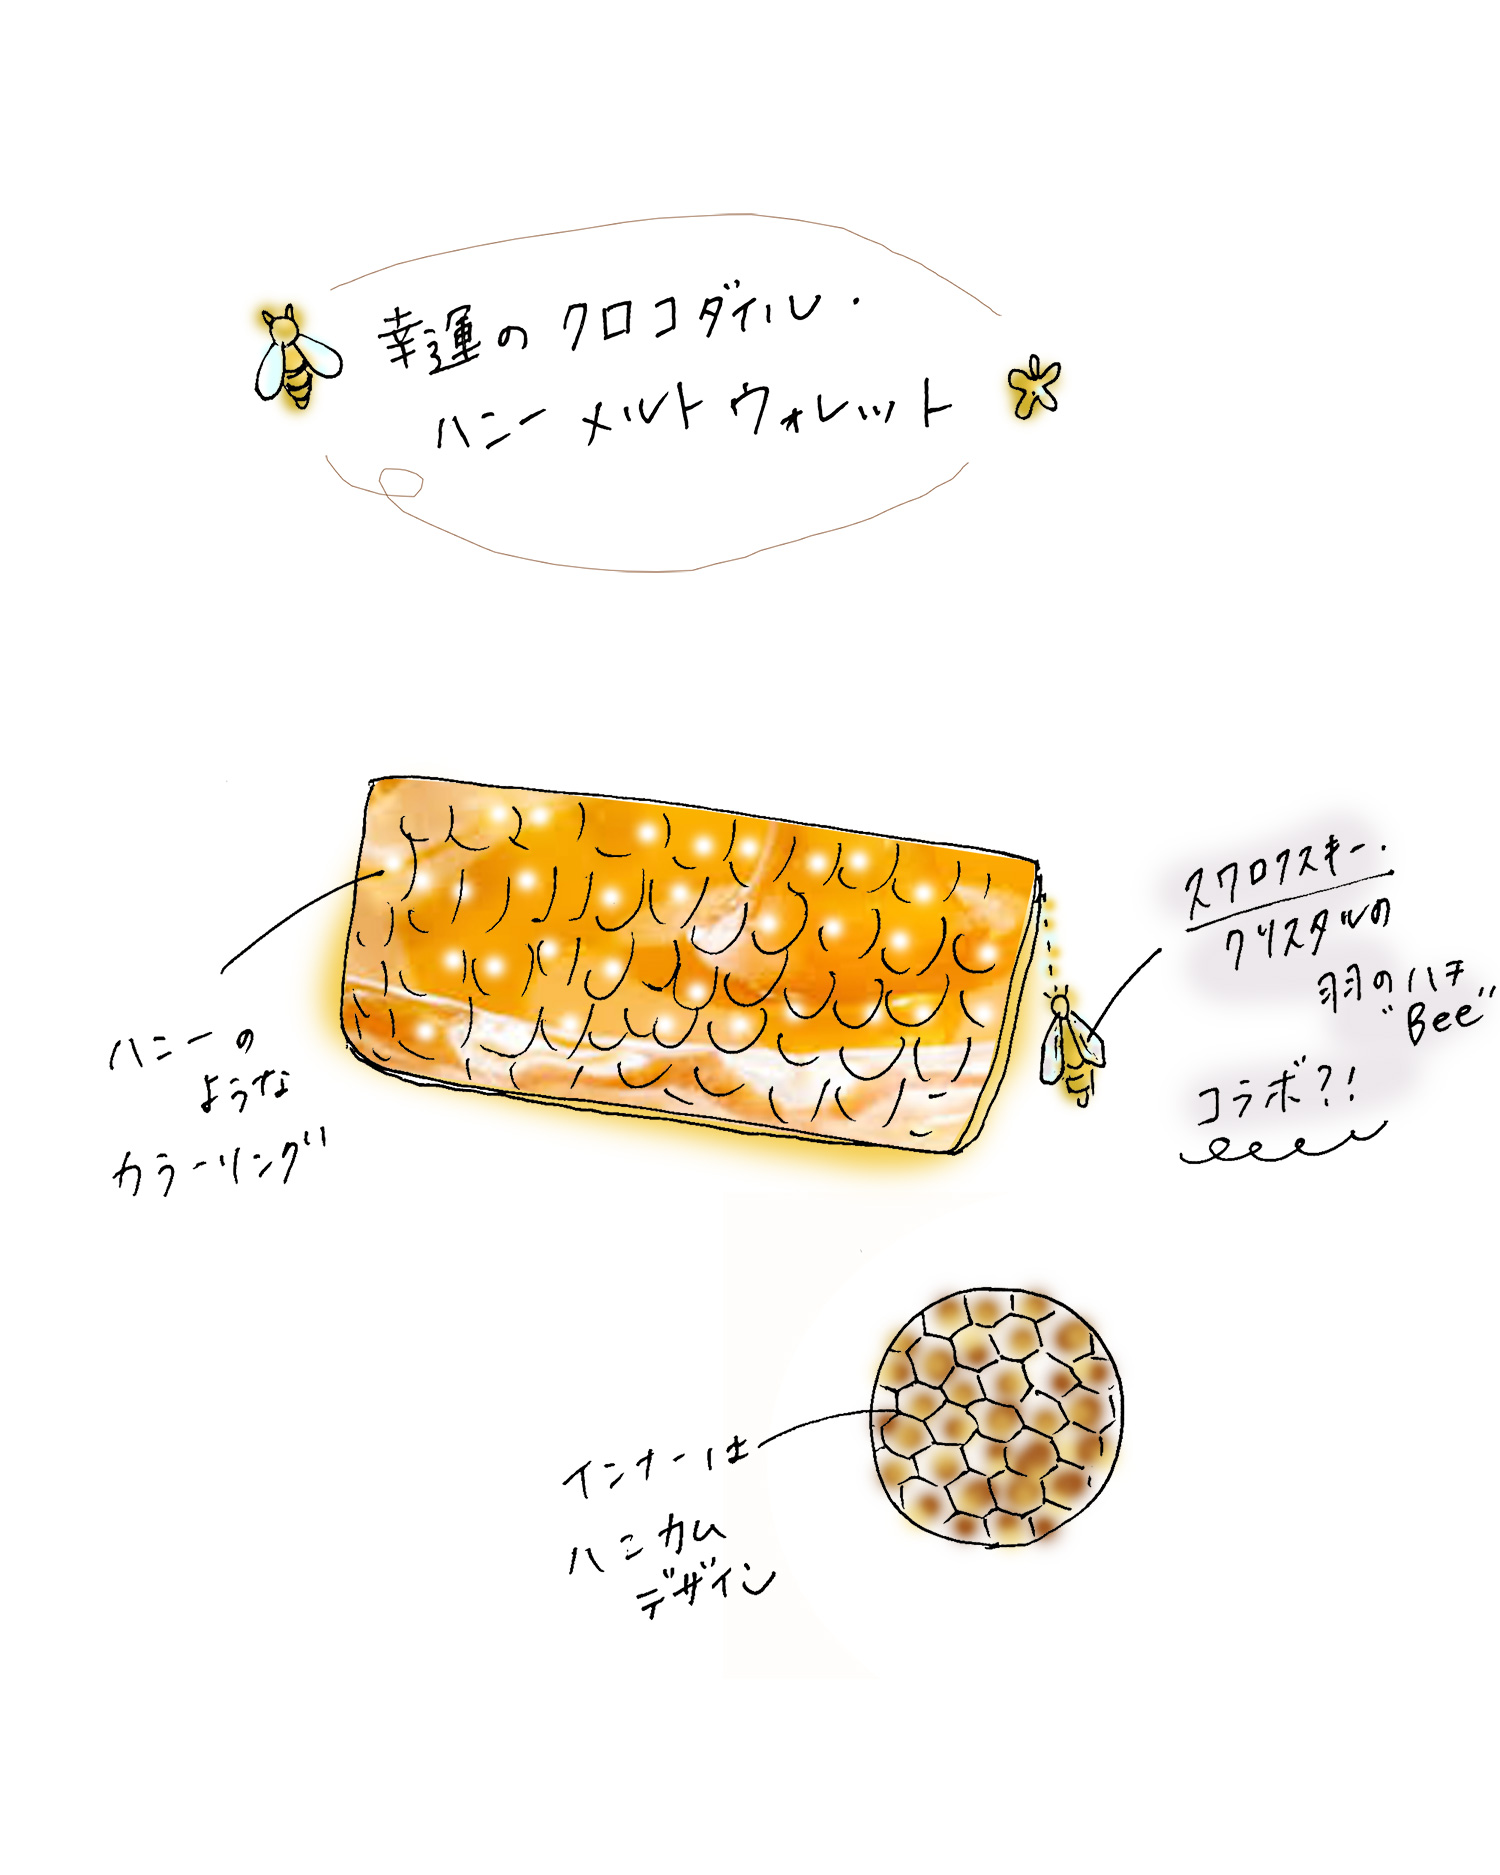 幸運のクロコダイル・
ハニーメルトウォレット
スワロフスキー・
クリスタルの
羽のハチ
"Bee"
コラボ?!
ハニーの
ような
カラーリング
インナーは
ハニカム
デザイン